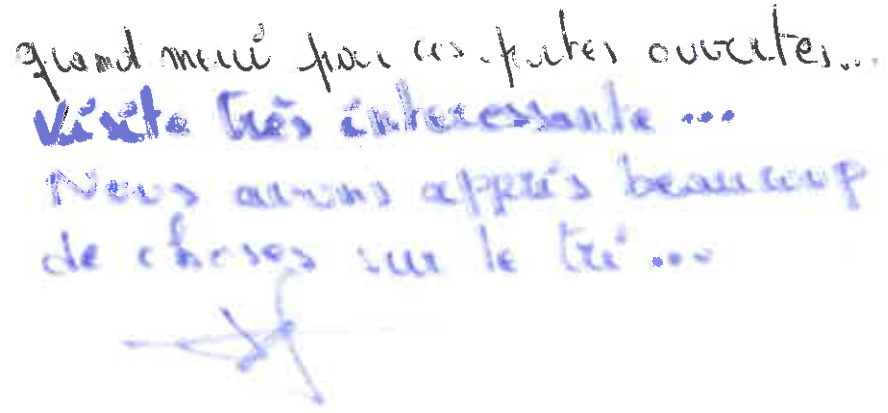 grand merci pour ces portes ouvertes...
Visite très intéressante ...
Nous avons appris beaucoup
de choses sur le tri ...